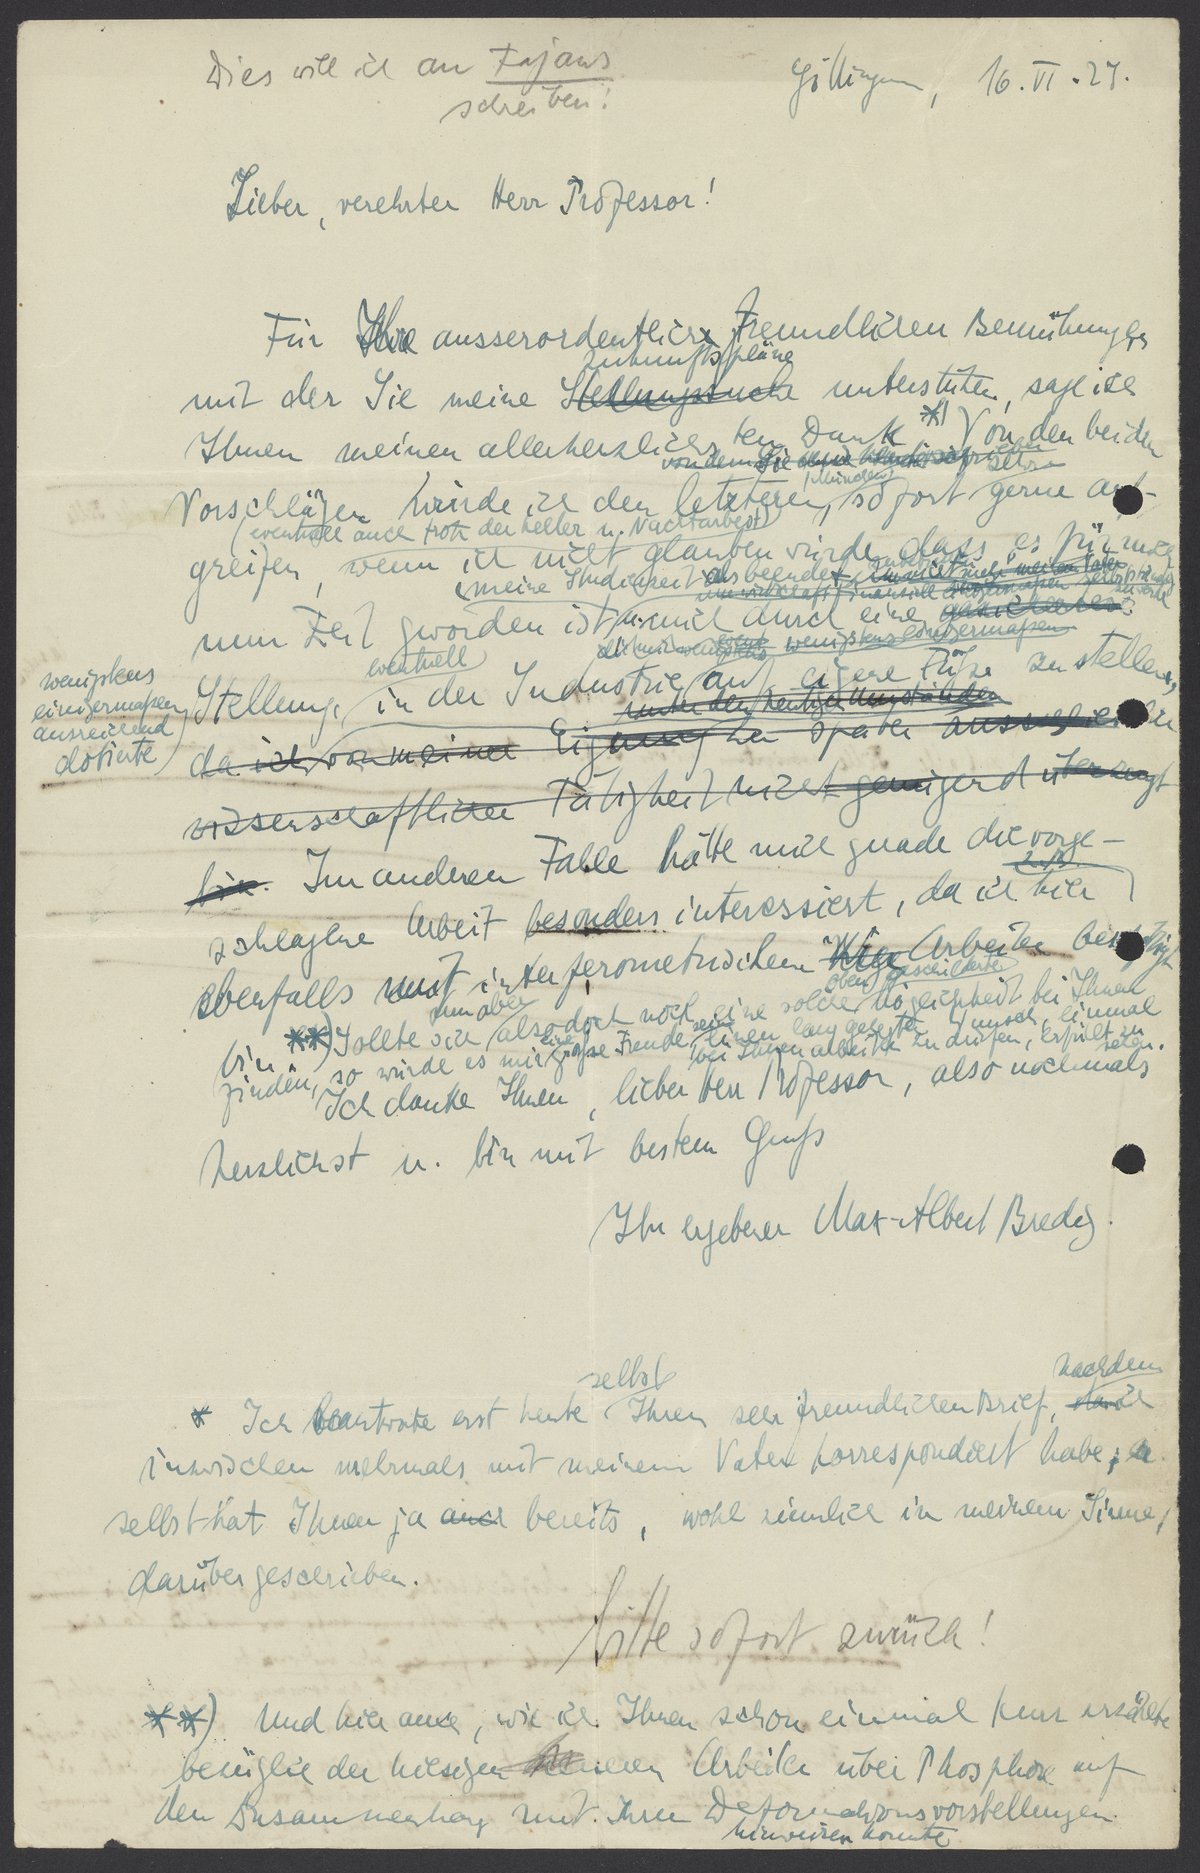 Dies will ich an Fajans
schreiben!
Göttingen, 16. VI. 27.
Lieber, verehrter Herr Professor!
Für Ihre ausserordentlich freundlichen Bemühungen
Zukunftspläne
mit der Sie meine Stellungsuche unterstützen, sage ich
Ihnen meinen allerherzlichsten Dank *) Von den beiden
von dem Sie
(München) sehr
Vorschlägen würde ich den letzteren, sofort gerne auf-
(eventuell auch trotz der Keller u. Nachtarbeit)
greifen, wenn ich nicht glauben würde, dass es für mich
(meine Studienzeit als beendet
nun Zeit geworden ist, mich durch eine gesicherte
wenigstens einigermaßen
wenigstens
einigermaßen
ausreichend
dotierte
eventuell
Stellung, in der Industrie auf eigene Füße zu stellen,
unter den heutigen Umständen
da ich von meiner Eignung zu später ausschließlichen
wissenschaftlichen Tätigkeit nicht genügend überzeugt
bin. Im anderen Falle hätte mich grade die vorge-
z. B.
schlagene Arbeit besonders interessiert, da ich hier
ebenfalls mit interferometrischen Arbeiten beschäftigt
bin **) Sollte sich nun aber also doch noch eine solche oben geschilderte Möglichkeit bei Ihnen
finden, so würde es mir eine große Freude sein, einen lang gehegten Wunsch, einmal
bei Ihnen arbeiten zu dürfen, erfüllt zu
sehen.
Ich danke Ihnen, lieber Herr Professor, also nochmals
herzlichst u. bin mit bestem Gruß
Ihr ergebener Max-Albert Bredig.
selbst nachdem
* Ich beantworte erst heute Ihren sehr freundlichen Brief, da ich
inzwischen mehrmals mit meinem Vater korrespondiert habe; er
selbst hat Ihnen ja auch bereits, wohl ziemlich in meinem Sinne,
darüber geschrieben.
bitte sofort zurück!
**) Und hier auch, wie ich Ihnen schon einmal kurz erzählte
bezüglich der hiesigen neuen Arbeiten über Phosphore auf
den Zusammenhang mit Ihren Deformationsvorstellungen
hinweisen konnte